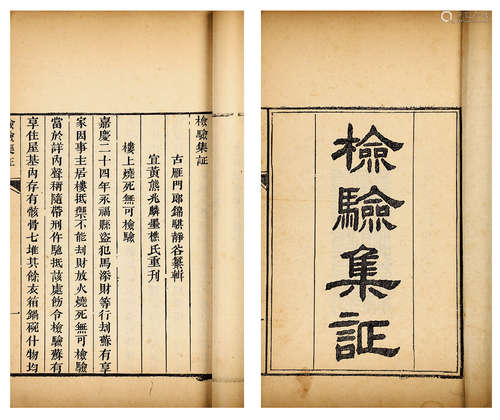 檢驗集証
檢驗集証
古雁門郎錦騏靜谷纂輯
宜黃熊兆麟墨樵氏重刊
樓上燒死無可檢驗
嘉慶二十四年永福縣盜犯馬添財等行刦蘇有享
家因事主居樓抵禦不能刦財放火燒死無可檢驗
當於詳內聲稱隨帶刑仵馳抵該處飭令檢驗蘇有
享住屋基內存有骸骨七堆其餘衣箱鍋碗什物均
檢驗集証